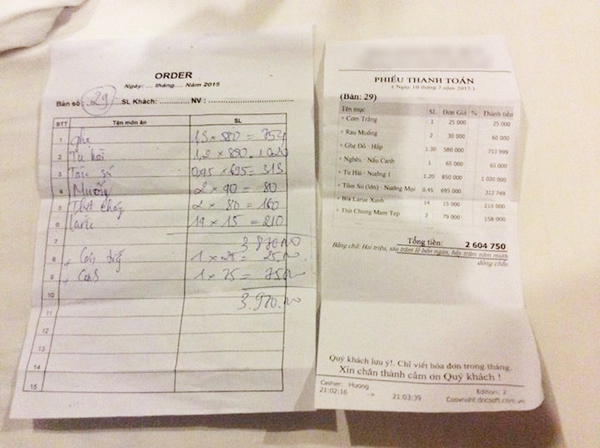 ORDER
Ngày: ... tháng.... Năm 2015
Bàn số: 29 SL Khách:........... NV :
STT Tên món ăn SL
1 ghẹ
2 Tu hài 1,2 x 850 = 1020
3 0,45 x 695 = 313
4 Muống 2 x 40 = 80
5 2 x 80 = 160
6 larue 14 x 15 = 210
7
8 1 x 25 = 25
9 Canh 1 x 75 = 75
10
11
12
13
14
15
PHIẾU THANH TOÁN
( Ngày 10 tháng 7 năm 2015 )
(Bàn: 29)
Tên mục SL Đơn Giá % Thành tiền
+ Cơm Trắng 1 25 000 25 000
+ Rau Muống 2 30 000 60 000
+ Ghẹ Đỏ - Hấp 1.30 580 000 753 999
+ Nghêu - Nấu Canh 1 65 000 65 000
+ Tu Hài - Nướng 1 1.20 850 000 1 020 000
+ Tôm Sú (lớn) - Nướng Mọi 0.45 695 000 312 749
+ Bia Larue Xanh 14 15 000 210 000
+ Thịt Chưng Mắm Tép 2 79 000 158 000
Tổng tiền: 2 604 750
Bằng chữ: Hai triệu, sáu trăm lẻ bốn ngàn, bảy trăm năm mươi
đồng chẵn
Quý khách lưu ý!. Chỉ viết hóa đơn trong tháng.
Xin chân thành cảm ơn Quý khách !
Casher: Hương Edition: 3
21:02:16 ---> 21:03:39 Copyright.dncsoft.com.vn